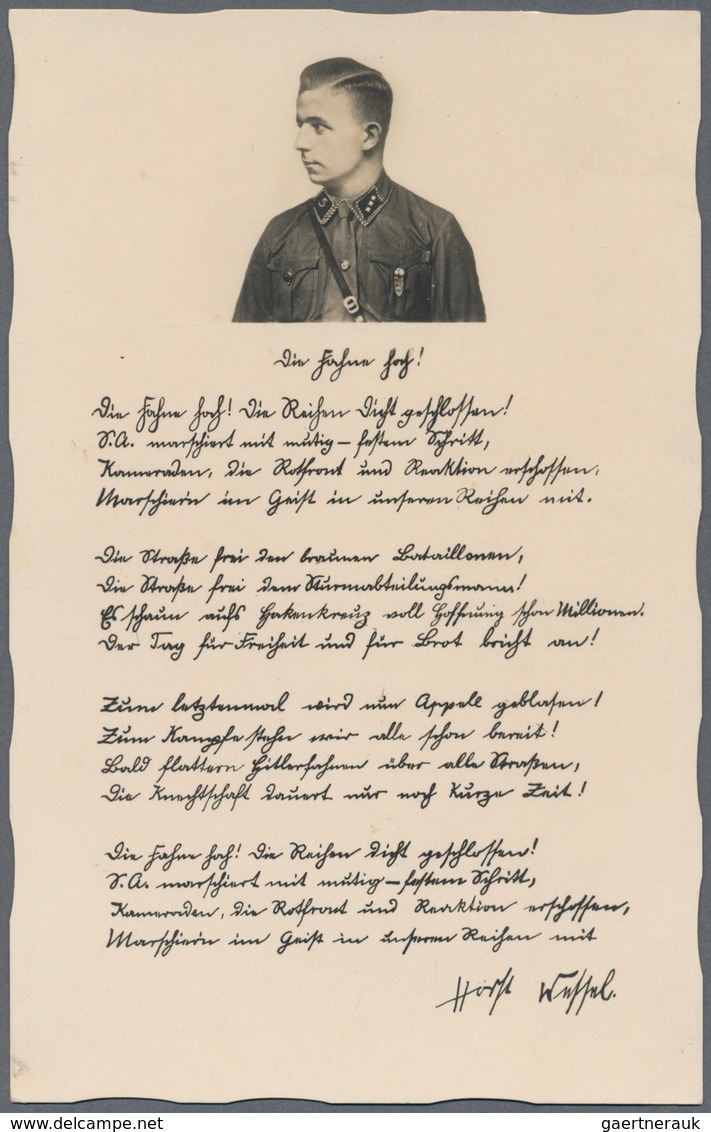 Die Fahne hoch!
Die Fahne hoch! Die Reihen dicht geschlossen!
S.A. marschiert mit mutig-festem Schritt,
Kameraden, die Rotfront und Reaktion erschossen,
Marschier'n im Geist in unseren Reihen mit.
Die Straße frei den braunen Bataillonen,
Die Straße frei dem Sturmabteilungsmann!
Es schaun aufs Hakenkreuz voll Hoffnung schon Millionen.
Der Tag für Freiheit und für Brot bricht an!
Zum letztenmal wird nun Appell geblasen!
Zum Kampfe stehn wir alle schon bereit!
Bald flattern Hitlerfahnen über alle Straßen,
Die Knechtschaft dauert nur noch kurze Zeit!
Die Fahne hoch! Die Reihen dicht geschlossen!
S.A. marschiert mit mutig-festem Schritt,
Kameraden, die Rotfront und Reaktion erschossen,
Marschier'n im Geist in unseren Reihen mit
Horst Wessel.
delcampe.net
gaertnerauk